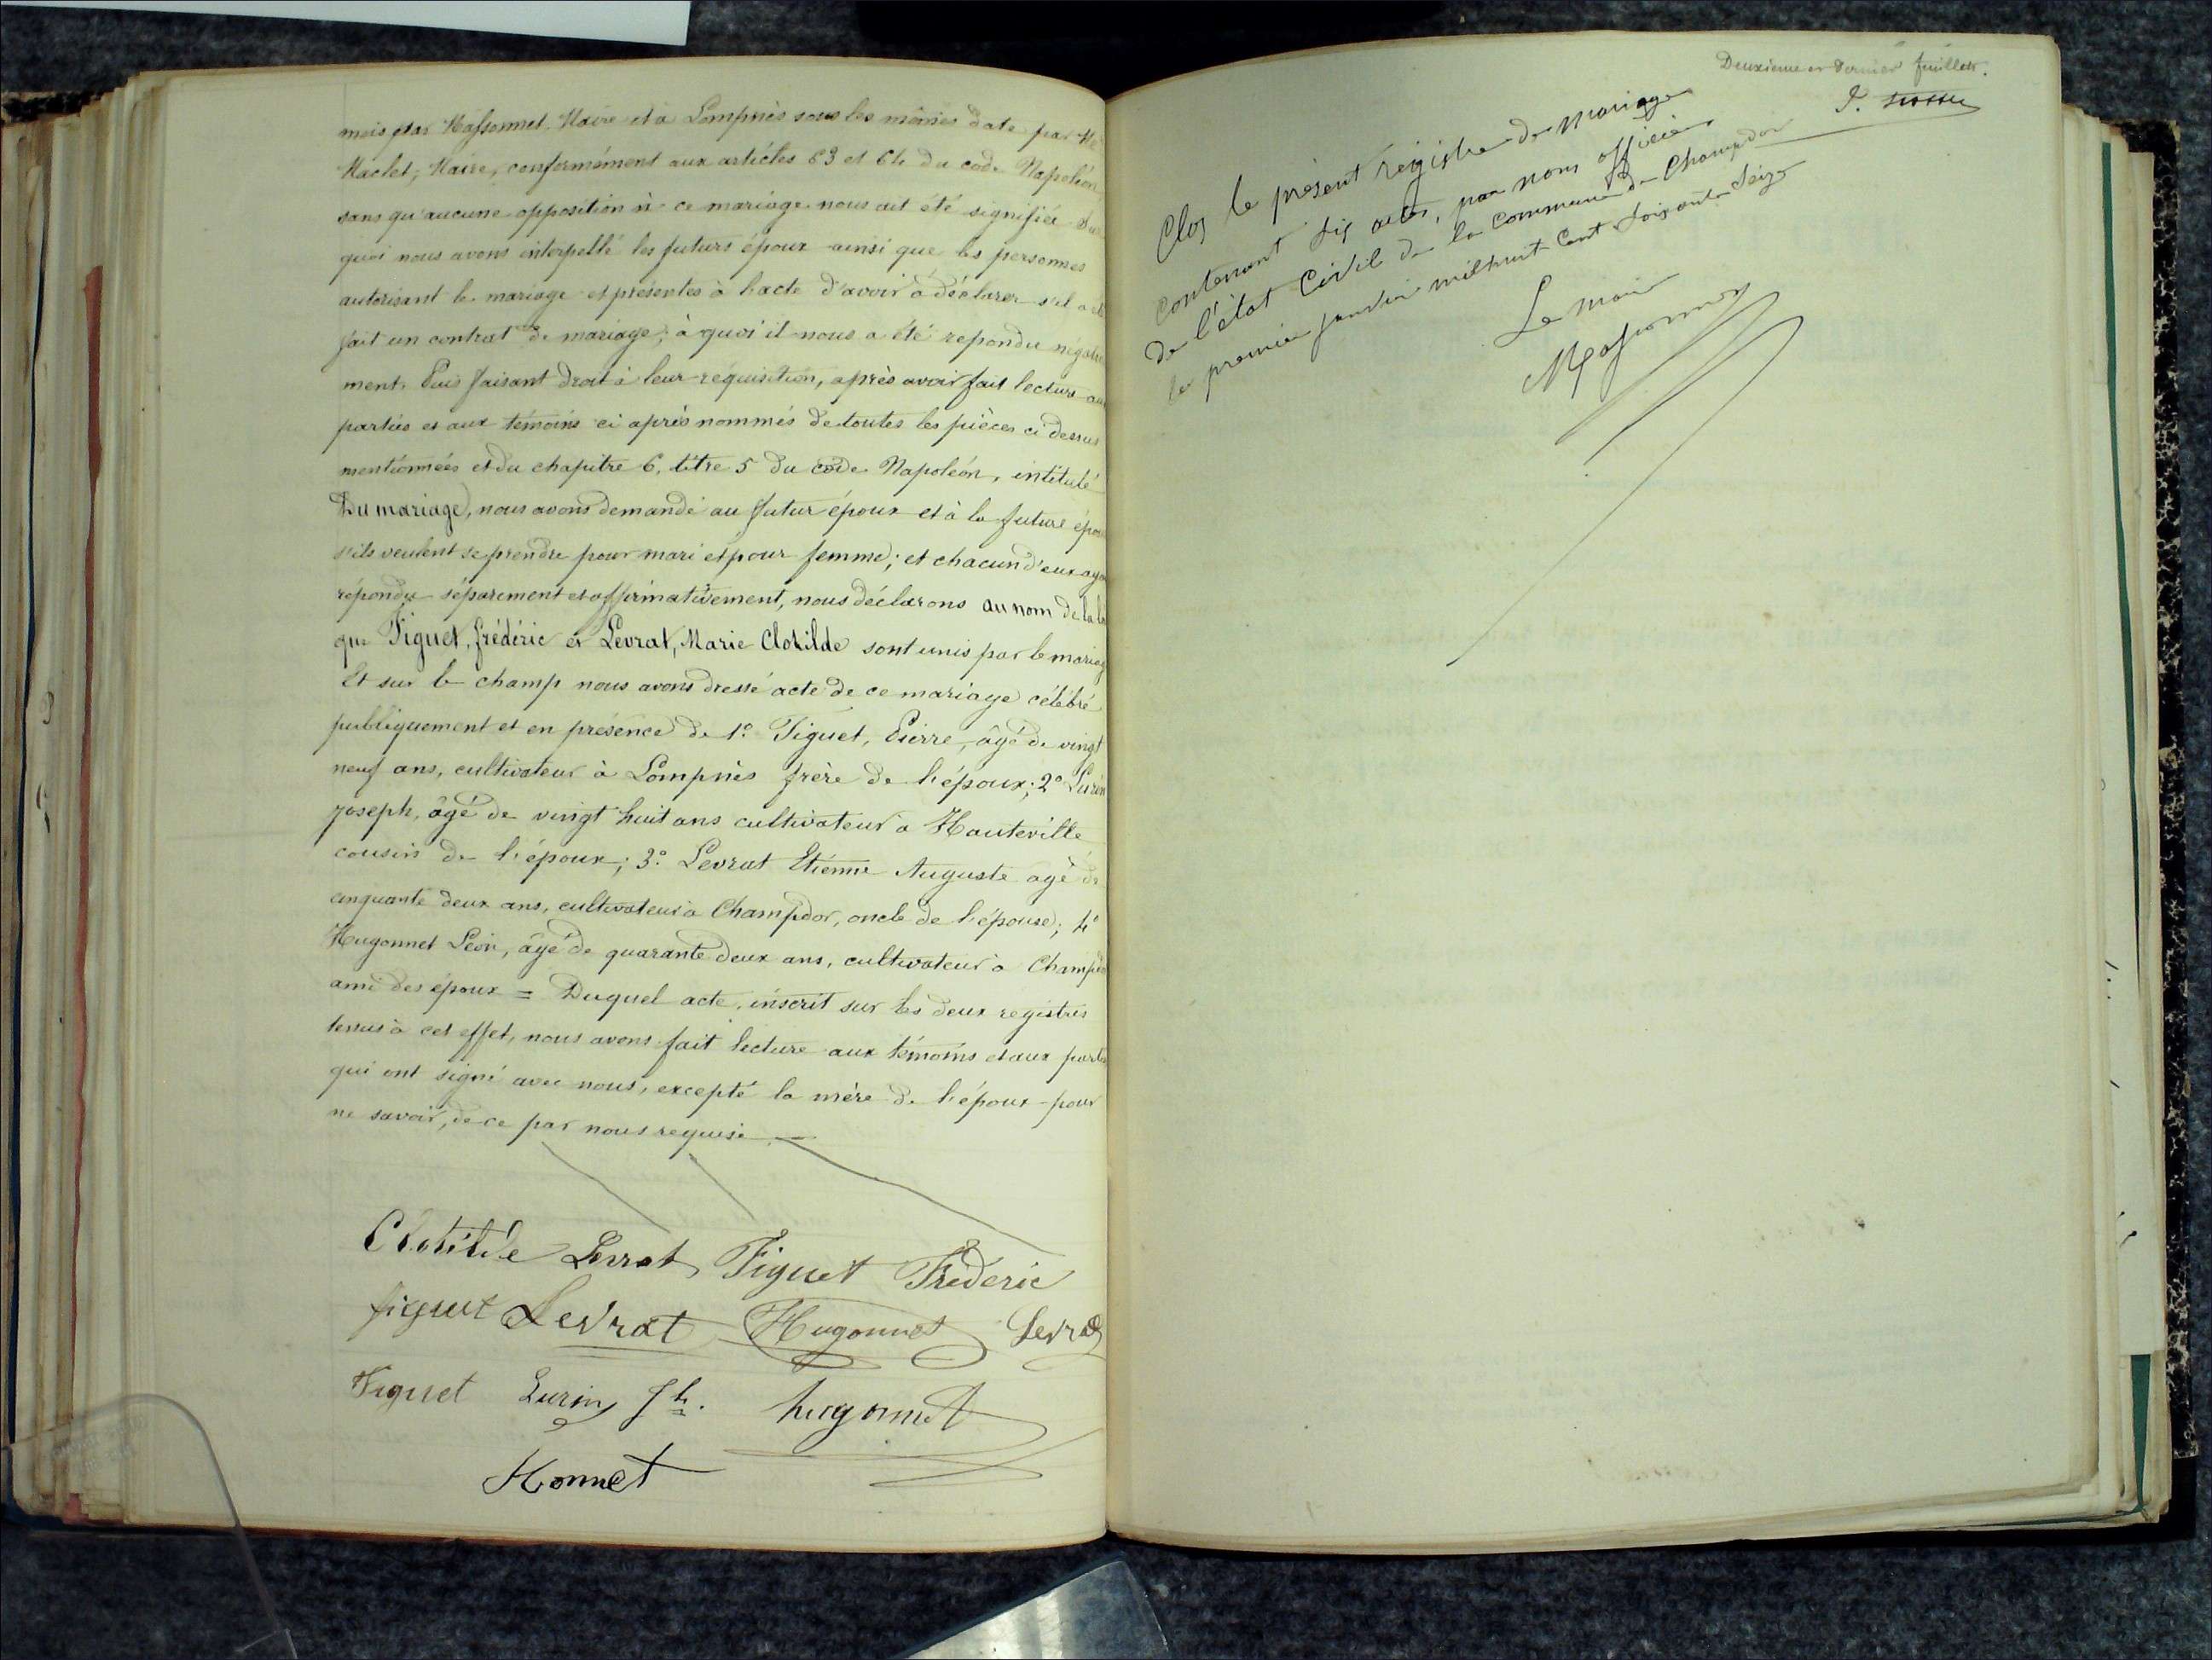 mois par Massonnet, Maire et à Lompnès sous les mêmes date par Mr
Maclet, Maire, conformément aux articles 63 et 64 du code Napoléon
sans qu'aucune opposition à ce mariage nous ait été signifiée. Sur
quoi nous avons interpellé les futurs époux ainsi que les personnes
autorisant le mariage et présentes à l'acte d'avoir à déclarer s'il a été
fait un contrat de mariage; à quoi il nous a été repondu négative
ment. Puis faisant droit à leur réquisition, après avoir fait lecture aux
parties et aux témoins ci après nommés de toutes les pièces ci dessus
mentionnées et du chapitre 6, titre 5 du code Napoléon, intitulé
Du mariage, nous avons demandé au futur époux et à la future épouse
s'ils veulent se prendre pour mari et pour femme; et chacun d'eux ayant
répondu séparement et affirmativement, nous déclarons au nom de la loi
que Figuet, frédéric et Levrat, Marie Clotilde sont unis par le mariage
Et sur le champ nous avons dressé acte de ce mariage célébré
publiquement et en présence de 1° Figuet, Pierre, âgé de vingt
neuf ans, cultivateur à Lompnès frère de l'époux; 2° Lurin
joseph, âgé de vingt huit ans cultivateur à Hauteville
cousin de l'époux; 3° Levrat Etienne Auguste agé de
cinquante deux ans, cultivateur à Champdor, oncle de l'épouse; 4°
Hugonnet Léon, âgé de quarante deux ans, cultivateur à Champdor
ami des époux = Duquel acte, inscrit sur les deux registres
tenus à cet effet, nous avons fait lecture aux témoins et aux parties
qui ont signé avec nous, excepté la mère de l'époux pour
ne savoir, de ce par nous requise.
Clotilde Levrat Figuet Frédéric
figuet Levrat Hugonnet Levrat
Figuet Lurin Jh. hugonnet
Monnet
Deuxième et dernier feuillet.
Clos le présent régistre de mariage
contenant dix actes, par nous officier
de l'état Civil de la commune de Champdor
le premier janvier mil huit cent soixante seize
Le maire
Massonnet